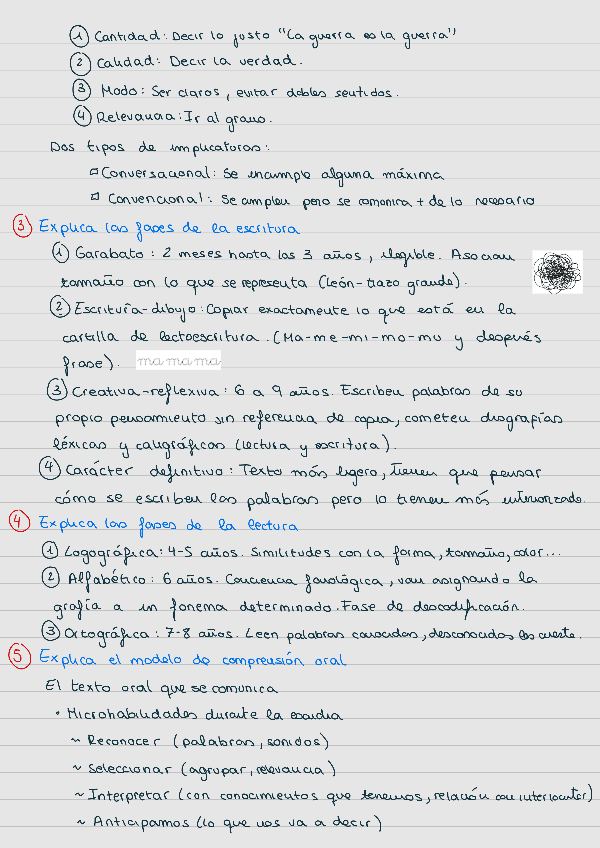 ① Cantidad: Decir lo justo "La guerra es la guerra"
② Calidad: Decir la verdad.
③ Modo: Ser claros, evitar dobles sentidos.
④ Relevancia: Ir al grano.
Dos tipos de implicaturas:
▫ Conversacional: Se incumple alguna máxima
▫ Convencional: Se cumplen pero se comunica + de lo necesario
③ Explica las fases de la escritura
① Garabato: 2 meses hasta los 3 años, ilegible. Asocian
tamaño con lo que se representa (león-trazo grande).
② Escritura-dibujo: Copiar exactamente lo que está en la
cartilla de lectoescritura. (Ma-me-mi-mo-mu y después
frase). ma ma ma
③ Creativa-reflexiva: 6 a 9 años. Escriben palabras de su
propio pensamiento sin referencia de copia, cometen disgrafías
léxicas y caligráficas (lectura y escritura).
④ Carácter definitivo: Texto más ligero, tienen que pensar
cómo se escriben las palabras pero lo tienen más interiorizado.
④ Explica las fases de la lectura
① Logográfica: 4-5 años. Similitudes con la forma, tamaño, color...
② Alfabético: 6 años. Conciencia fonológica, van asignando la
grafía a un fonema determinado. Fase de descodificación.
③ Ortográfica: 7-8 años. Leen palabras conocidas, desconocidas les cuesta.
⑤ Explica el modelo de comprensión oral
El texto oral que se comunica
• Microhabilidades durante la escucha
~ Reconocer (palabras, sonidos)
~ Seleccionar (agrupar, relevancia)
~ Interpretar (con conocimientos que tenemos, relación con interlocutor)
~ Anticipamos (lo que nos va a decir)